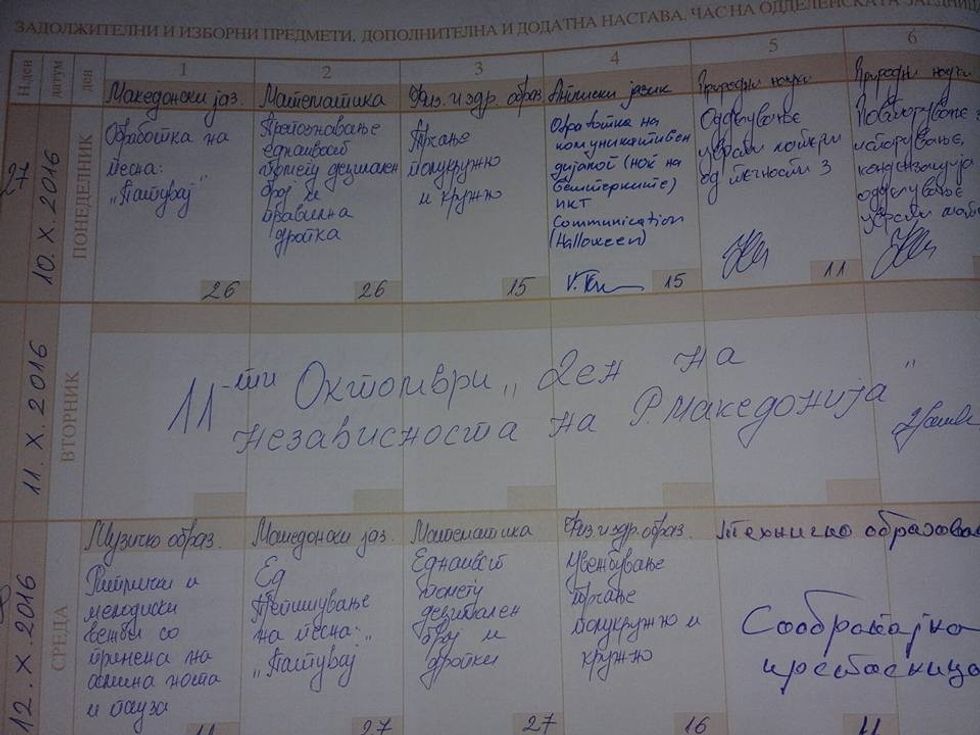 ЗАДОЛЖИТЕЛНИ И ИЗБОРНИ ПРЕДМЕТИ, ДОПОЛНИТЕЛНА И ДОДАТНА НАСТАВА, ЧАС НА ОДДЕЛЕНСКАТА ЗАЕДНИЦА
Н.ден
датум
ден
1
2
3
4
5
6
10. X. 2016
ПОНЕДЕЛНИК
Македонски јаз.
Обработка на
песна:
„Патувај
26
Математика
Препознавање
еднаквост
помеѓу децимален
број и
правилна
дропка
26
Физ. и здр. образ
Трчање
полукружно
и кружно
15
Англиски јазик
Обработка на
комуникативен
дијалог (ноќ на
вештерките)
ИКТ
Communication
(Halloween)
15
Природни науки
Одделување
цврсти
од течности 3
11
Природни науки
Повторување
испарување,
одделување
цврсти
11. X. 2016
ВТОРНИК
11-ти Октомври „Ден на
независноста на Р. Македонија"
12. X. 2016
СРЕДА
Музичко образ.
Ритмички и
мелодиски
вежби со
примена на
осмина нота
и пауза
11
Македонски јаз.
Препишување
на песна:„
„Патувај
27
Математика
Еднаквост
помеѓу
децимален
број и
дропки
27
Физ. и здр. образ.
Увежбување
трчање
полукружно и
кружно
16
Техничко образова
Сообраќајна
крстосница
11